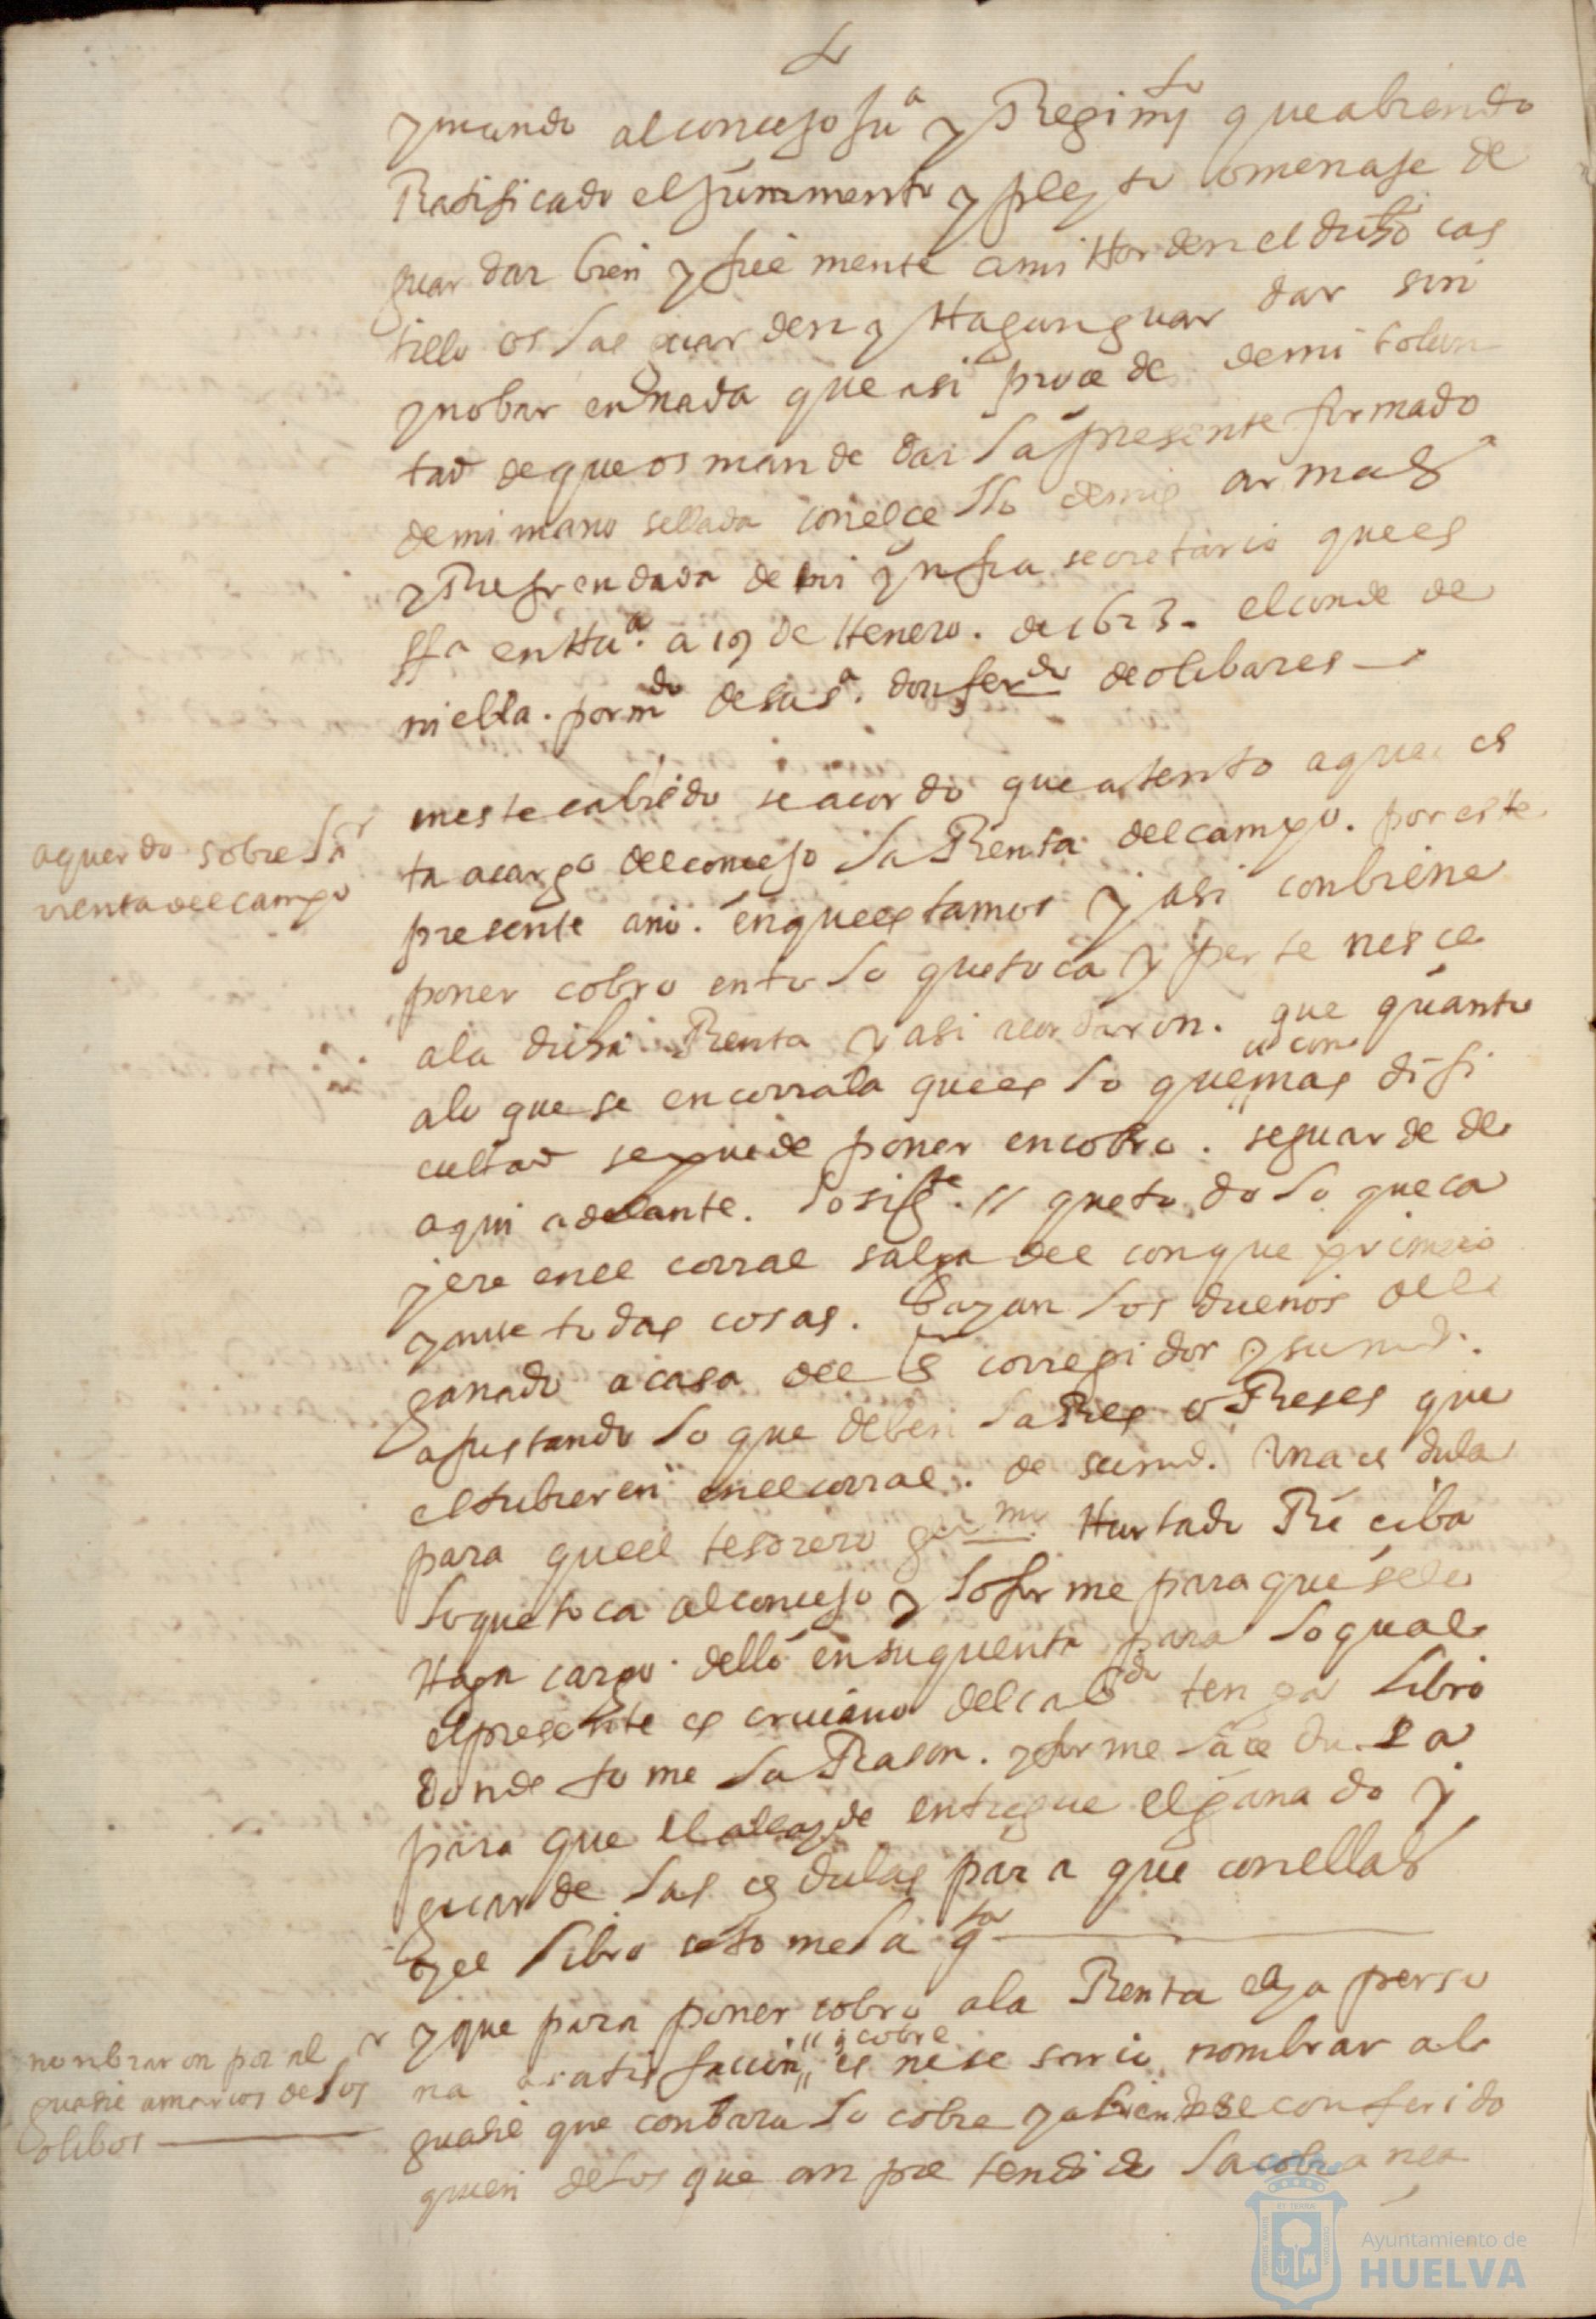 y mando al concejo justa y Regimto que abiendo
Ratificado el juramento y pleyto omenaje de
guardar bien y fielmente a mi Horden el dicho cas
tillo os las guarden y Hagan guardar sin
ynobar en nada que asi procede de mi bolun
tad de que os mande dar la presente firmado
de mi mano sellada con el cello de mis armas
y Refrendada de mi ynfra secretario que es
ffa en Hua. a 19 de Henero. de 1623. el conde de
niebla. por mdo de su sa. don ferdo de olibares
aquerdo sobre la
renta del campo
en este cabildo se acordo que atento a que es
ta a cargo del concejo la Renta del campo. por este
presente año. en que estamos y asi conbiene
poner cobro en to lo que toca y pertenesce
a la dicha Renta y asi acordaron. que quanto
a lo que se encorrala que es lo que con mas difi
cultad se puede poner en cobro. se guarde de
aqui adelante. lo sigte. // que todo lo que ca
yere en el corral salga del con que primero
y ante todas cosas. bayan los dueños del
ganado a casa del sr corregidor y su md.
ajustando lo que deben la Res o Reses que
estubieren en el corral. de su md. una cedula
para que el tesorero germo Hurtado Reciba
lo que toca al concejo y lo firme para que se le
Haga cargo dello en su quenta para lo qual
el presente escriuano del cabdo tenga libro
donde tome la Rason. y firme la cedula
para que el alcayde entregue el ganado y
guarde las cedulas para que con ellas
y el libro se tome la qta
nonbraron por al
guasil a marcos de los
olibos
y que para poner cobro a la Renta aya perso
na a satisfacion y cobre es nesesario nombrar al
guasil que con bara lo cobre y abiendose conferido
quien de los que an pretendido la cobranca
Ayuntamiento de
HUELVA